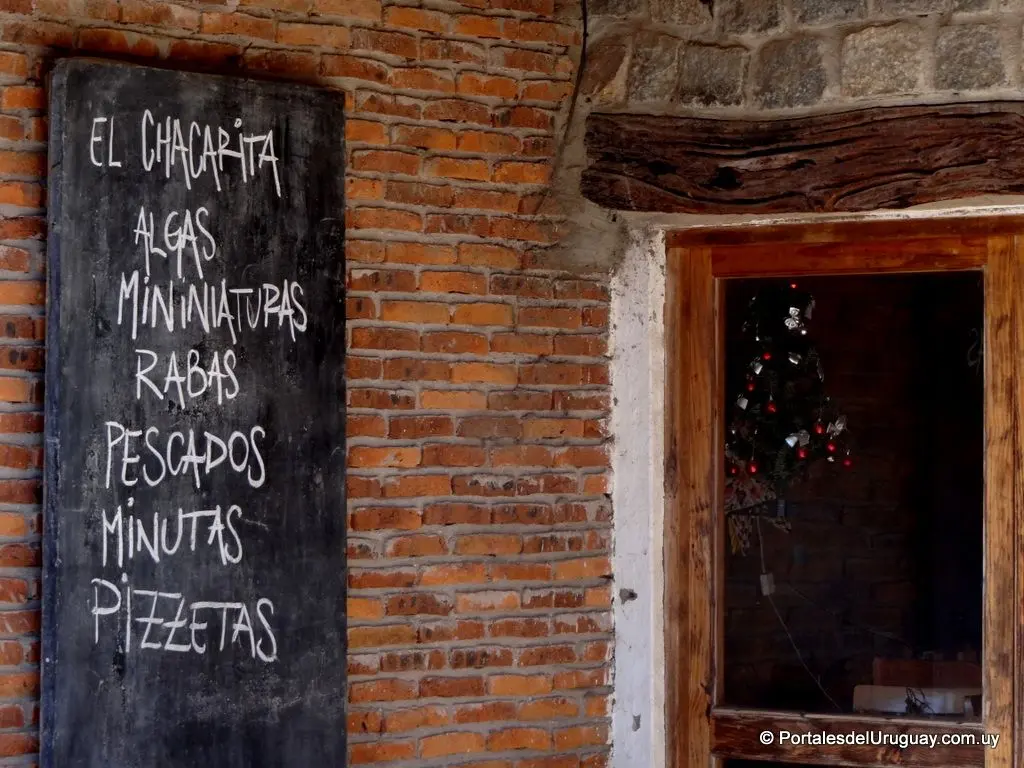 EL CHACARITA
ALGAS
MININIATURAS
RABAS
PESCADOS
MINUTAS
PIZZETAS
© PortalesdelUruguay.com.uy